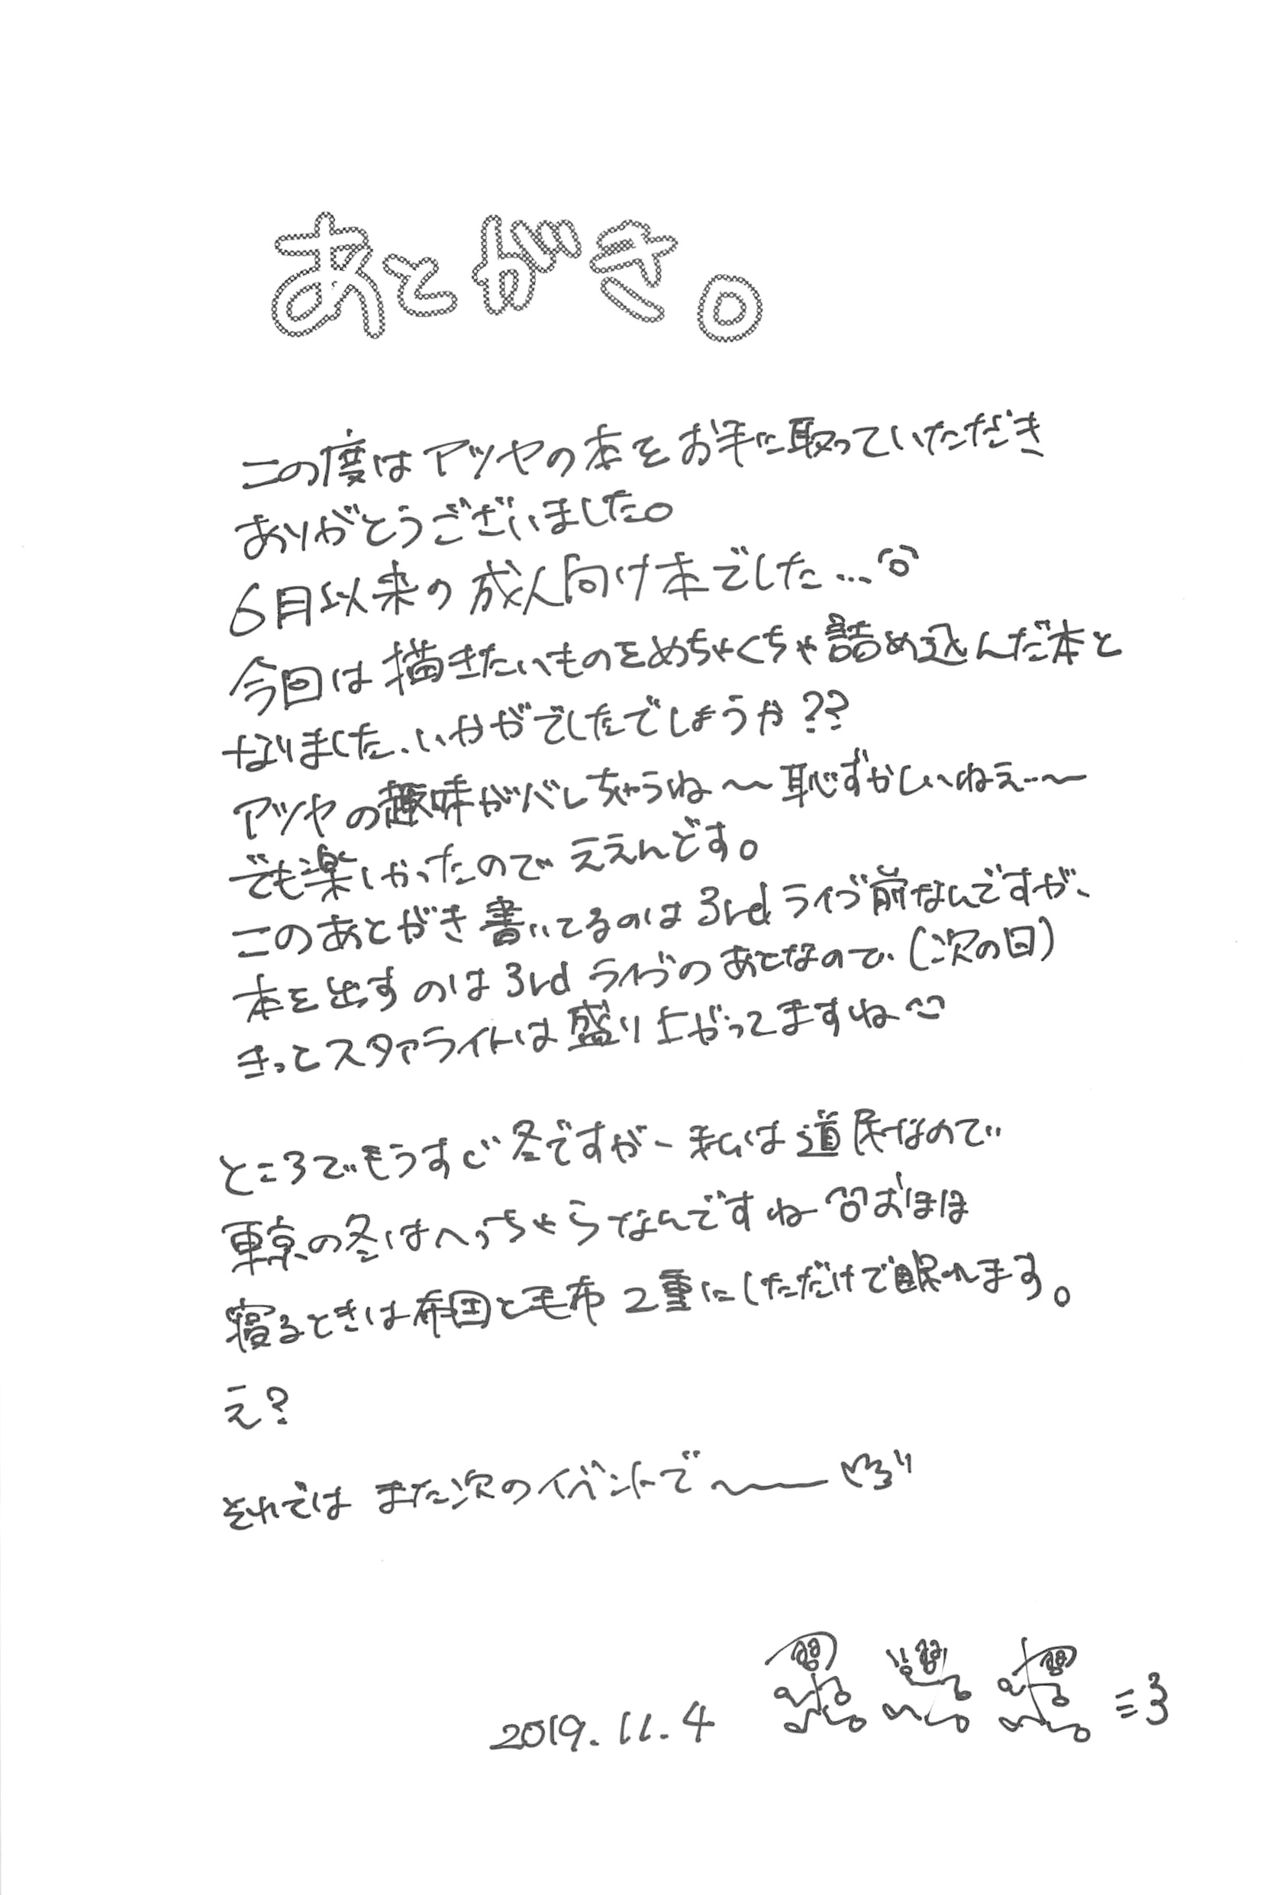 あとがき。
この度はアツヤの本をお手に取っていただき
ありがとうございました。
6月以来の成人向け本でした…
今回は描きたいものをめちゃくちゃ詰め込んだ本と
なりました、いかがでしたでしょうか??
アツヤの趣味がバレちゃうね〜恥ずかしいねえ…〜
でも楽しかったのでええんです。
このあとがき書いてるのは3rdライブ前なんですが、
本を出すのは3rdライブのあとなので、(次の日)
きっとスタァライトは盛り上がってますね
ところでもうすぐ冬ですがー私は道民なので
東京の冬はへっちゃらなんですねーおほほ
寝るときは布団と毛布2重にしただけで眠れます。
え?
それではまた次のイベントで〜
2019.11.4